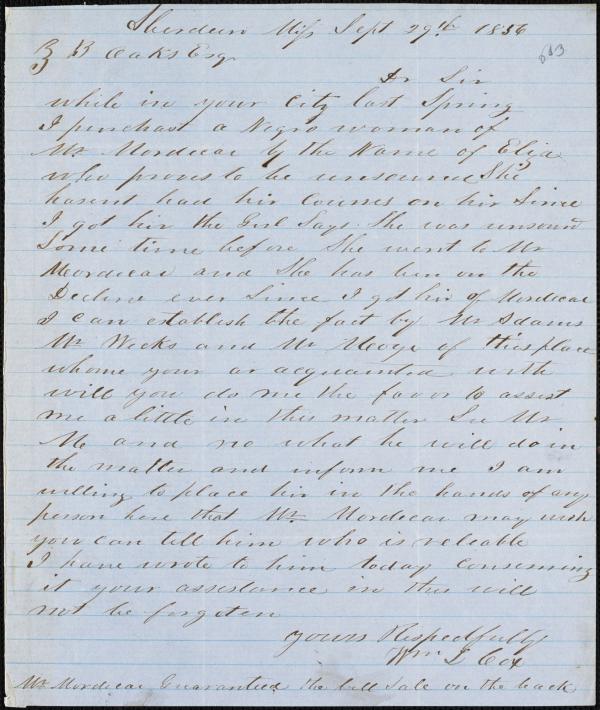 Aberdeen Miss Sept 29th 1856
Z B Oaks Esq
Dr Sir
while in your City last Spring
I purchast a Negro woman of
Mr Mordecai by the Name of Eliza
who proves to be unsound She
hasent had hir Courses on hir Since
I got hir the Girl Says She was unsound
Some time before She went to Mr
Mordecai and She has bin on the
Decline ever Since I got hir of Mordecai
I can establish the fact by Mr Adams
Mr Weeks and Mr of this place
whome your ar acquanted with
will you do me the favor to assist
me a little in this matter See Mr
Mc and no what he will do in
the matter and inform me I am
willing to place hir in the hands of any
person here that Mr Mordecai may wish
you can tell him who is reliable
I have wrote to him today Conserning
it your assistance in this will
not be forgoten
yours Respectfully
Wm L Cox
Mr Mordecai Guaranteed the bill Sale on the back